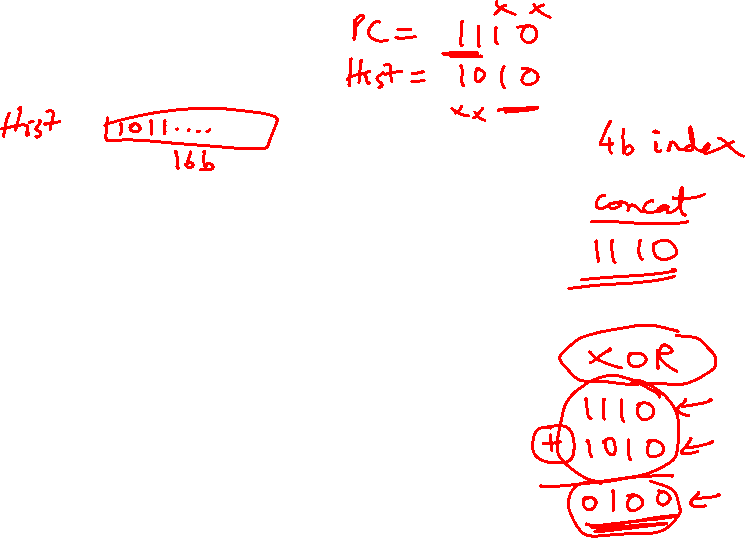 x x
PC = 1110
Hist = 1010
x x
Hist 1011....
16b
4b index
concat
1110
XOR
1110 ←
+ 1010 ←
0100 ←